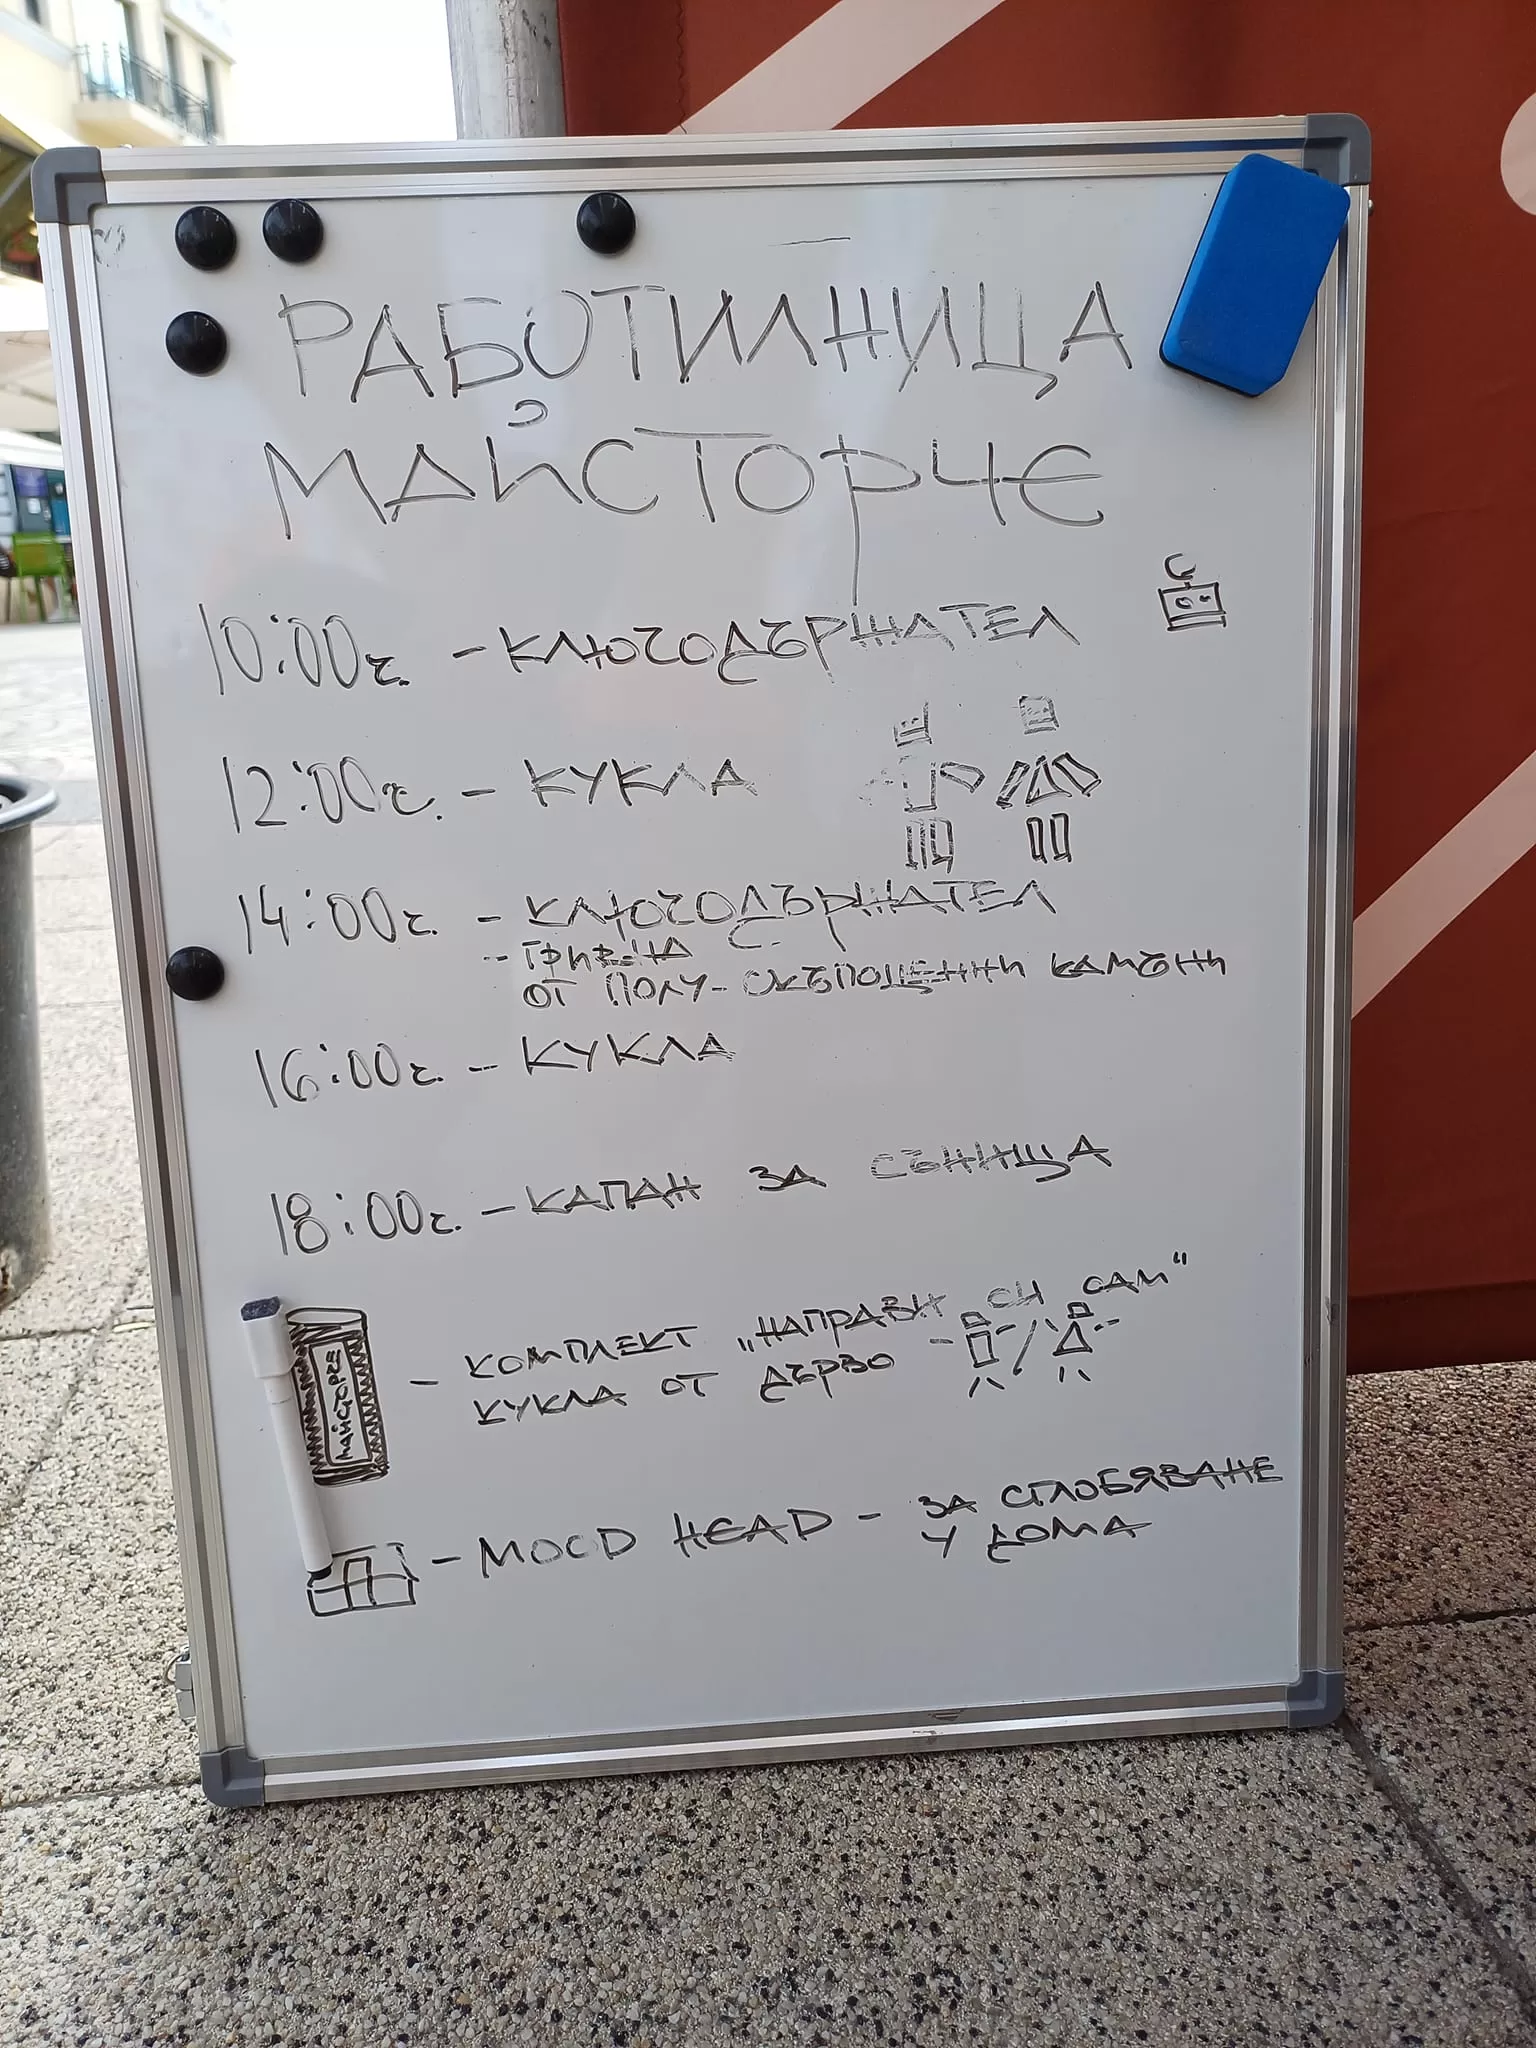 РАБОТИЛНИЦА
МАЙСТОРЧЕ
10:00г. - КЛЮЧОДЪРЖАТЕЛ
12:00г. - КУКЛА
14:00г. - КЛЮЧОДЪРЖАТЕЛ
- ГРИВНА
ОТ ПОЛУ-СКЪПОЦЕННИ КАМЪНИ
16:00г. - КУКЛА
18:00г. - КАПАН ЗА СЪНИЩА
- КОМПЛЕКТ „НАПРАВИ СИ САМ“
КУКЛА ОТ ДЪРВО -
МАЙСТОРЧЕ
- MOOD HEAD - ЗА СГЛОБЯВАНЕ
У ДОМА